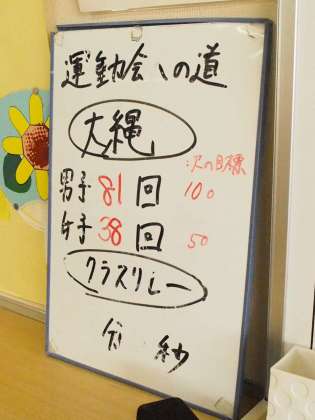 運動会への道
大縄
次の目標
男子 81回 100
女子 38回 50
クラスリレー
分 秒